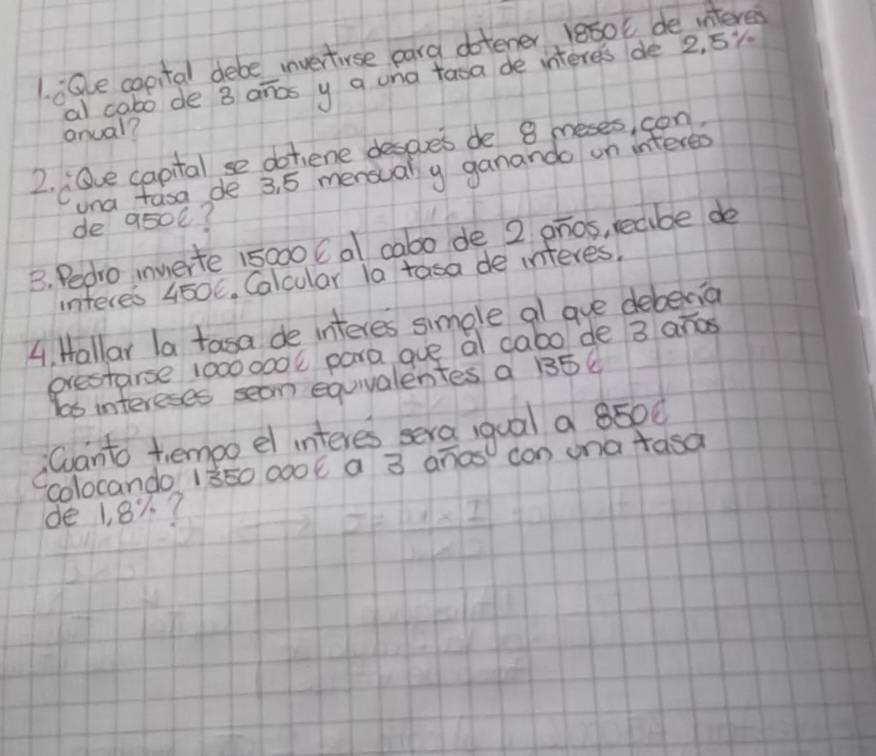 1. ¿Que capital debe invertirse para dotener 1850€ de interes
al cabo de 3 años y a una tasa de interés de 2,5%
anual?
2. ¿Que capital se dotiene después de 8 meses, con
una tasa de 3,5 mensual y ganando un interes
de 950€?
3. Pedro invierte 15000€ al cabo de 2 años, recibe de
interes 450€. Calcular la tasa de interes.
4. Hallar la tasa de interes simple al que debería
prestarse 1000000€ para que al cabo de 3 años
los intereses sean equivalentes a 135€
¿Cuánto tiempo el interés sera igual a 850€
colocando 1350 000€ a 3 años con una tasa
de 1,8%?